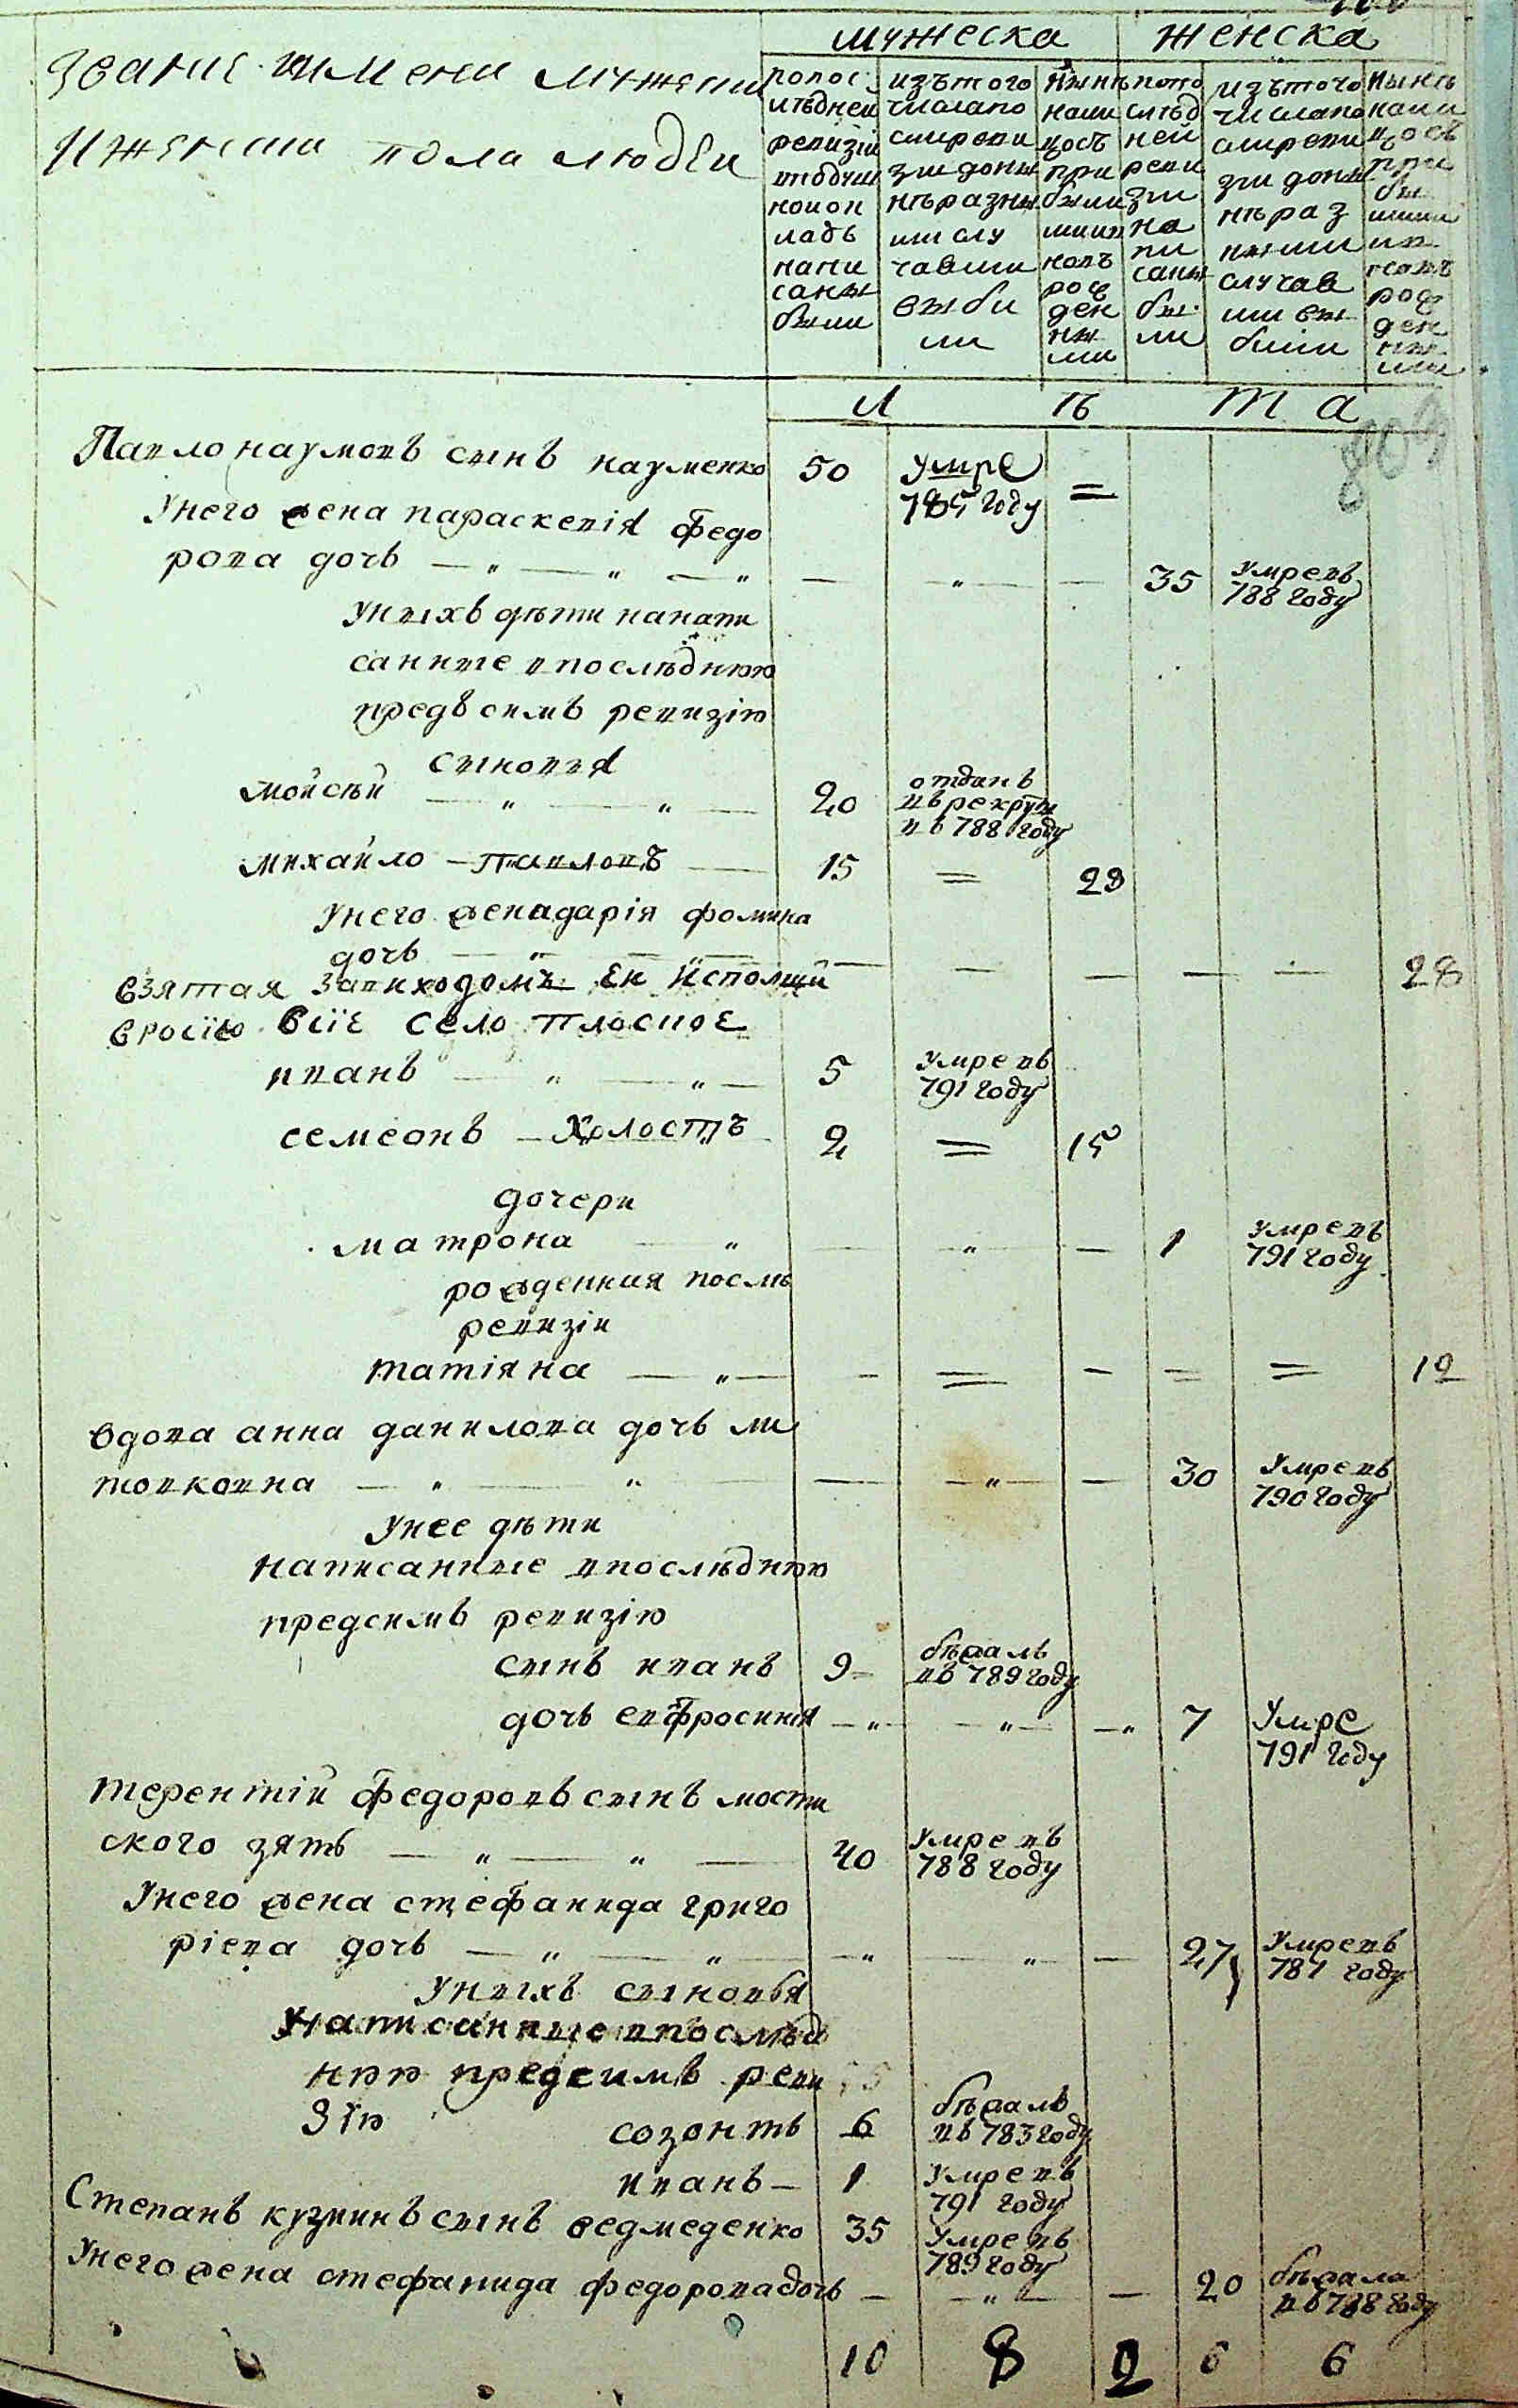 мужеска женска
Звание имени мужеска
и женска пола людей
по пос
ледней
ревизіи
в подуш
ной ок
ладъ
напи
саны
были
изъ того
числа по
сли реви
зіи до ны
нѣ разны
ми слу
чаями
выбы
ли
по по
слѣд
ней
реви
зіи
на
пи
саны
бы
ли
изъ того
числа по
сли реви
зіи до ны
нѣ раз
ными
случая
ми вы
были
Л ѣ т а
Павло наумовъ сынъ науменко 50 умре
785 году =
У него жена параскевія федо
рова дочь — „ — „ — „ — „ — 35 умре въ
788 году
У ныхъ дѣти напапи
санные в последнюю
предъ симъ ревизію
сыновья
Мойсѣй — „ — „ — 20 отданъ
въ рекруты
въ 788 году
михайло — Павловъ — 15 = 23
У него жена дарія фомина
дочь — „ — „ — — — — — 28
взятая
село Плоское
иванъ — „ — „ — 5 умре въ
791 году
семеонъ — Холостъ 2 = 15
дочери
матрона — „ — „ — 1 умре въ
791 году
рожденная послѣ
ревизіи
татіяна — „ — - = - = = 12
вдова анна данилова дочь ли
товковна — „ — „ — — „ — 30 умре въ
790 году
У нее дѣти
написанные в последнюю
предсимъ ревизію
сынъ иванъ 9 бѣжалъ
въ 789 году
дочь евфросинія — „ — „ — „ 7 умре
791 году
терентій федоровъ сынъ мости
ского зять — „ — „ — 40 умре въ
788 году
У него жена стефанида григо
ріева дочь — „ — „ — „ „ — 27 умре въ
787 году
У ныхъ сыновья
написанные в послѣд
нюю предсимъ реви
зію созонтъ 6 бѣжалъ
въ 783 году
иванъ — 1 умре въ
791 году
Степанъ кузминъ сынъ ведмеденко 35 умре въ
789 году
У него жена стефанида федорова дочь — „ — 20 бѣжала
въ 788 году
10 8 2 6 6